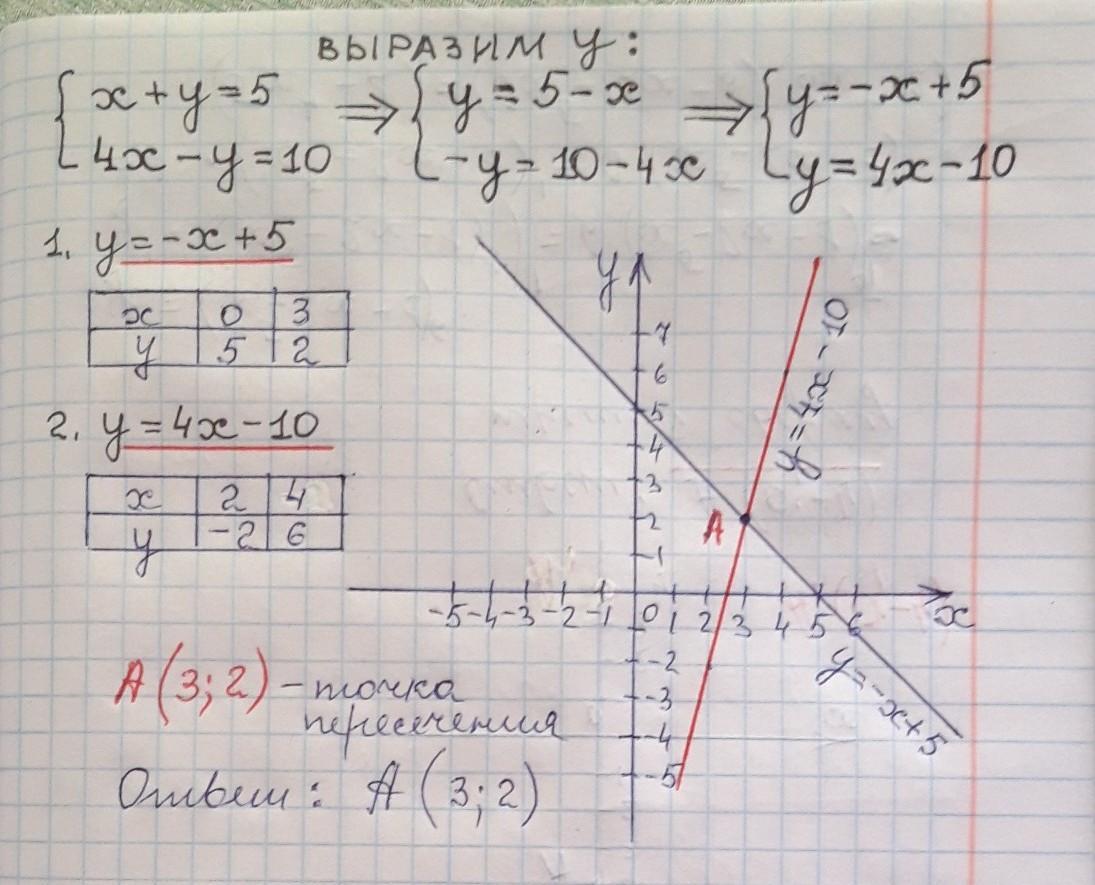 ВЫРАЗИМ y:
{ x + y = 5 ⇒ { y = 5 - x ⇒ { y = -x + 5
4x - y = 10 -y = 10 - 4x y = 4x - 10
1. y = -x + 5
x 0 3
y 5 2
2. y = 4x - 10
x 2 4
y -2 6
A (3; 2) - точка
пересечения
Ответ: A (3; 2)
y
7
6
5
4
3
2
1
A
-5 -4 -3 -2 -1 0 1 2 3 4 5 6 x
-2
-3
-4
-5
y = 4x - 10
y = -x + 5